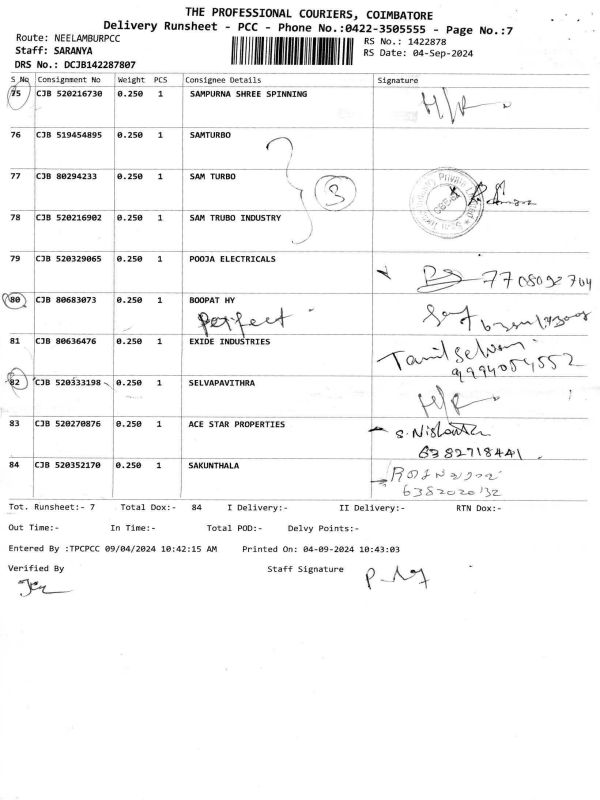 THE PROFESSIONAL COURIERS, COIMBATORE
Delivery Runsheet - PCC - Phone No.:0422-3505555 - Page No.:7
Route: NEELAMBURPCC
Staff: SARANYA
DRS No.: DCJB142287807
RS No.: 1422878
RS Date: 04-Sep-2024
S_No Consignment No Weight PCS Consignee Details Signature
75 CJB 520216730 0.250 1 SAMPURNA SHREE SPINNING H/R
76 CJB 519454895 0.250 1 SAMTURBO
77 CJB 80294233 0.250 1 SAM TURBO
3
78 CJB 520216902 0.250 1 SAM TRUBO INDUSTRY
79 CJB 520329065 0.250 1 POOJA ELECTRICALS
80 CJB 80683073 0.250 1 BOOPAT HY
Perfect
81 CJB 80636476 0.250 1 EXIDE INDUSTRIES Tamil Selvan
9994054552
82 CJB 520333198 0.250 1 SELVAPAVITHRA H/R
83 CJB 520270876 0.250 1 ACE STAR PROPERTIES
6382718441
84 CJB 520352170 0.250 1 SAKUNTHALA
6382020132
Tot. Runsheet:- 7 Total Dox:- 84 I Delivery:- II Delivery:- RTN Dox:-
Out Time:- In Time:- Total POD:- Delvy Points:-
Entered By :TPCPCC 09/04/2024 10:42:15 AM Printed On: 04-09-2024 10:43:03
Verified By Staff Signature